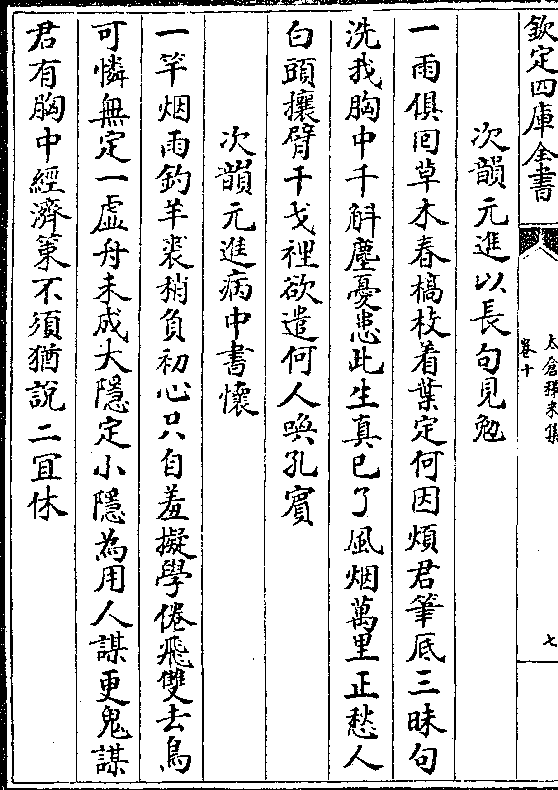 欽定四庫全書
太倉稊米集
卷十
七
次韻元進以長句見勉
一雨俱囘草木春槁枝着葉定何因煩君筆底三昧句
洗我胸中千斛塵憂患此生真已了風烟萬里正愁人
白頭攘臂干戈裡欲遣何人喚孔賓
次韻元進病中書懷
一竿烟雨釣羊裘稍負初心只自羞擬學倦飛雙去鳥
可憐無定一虛舟未成大隱定小隱為用人謀更鬼謀
君有胸中經濟策不須猶說二宜休